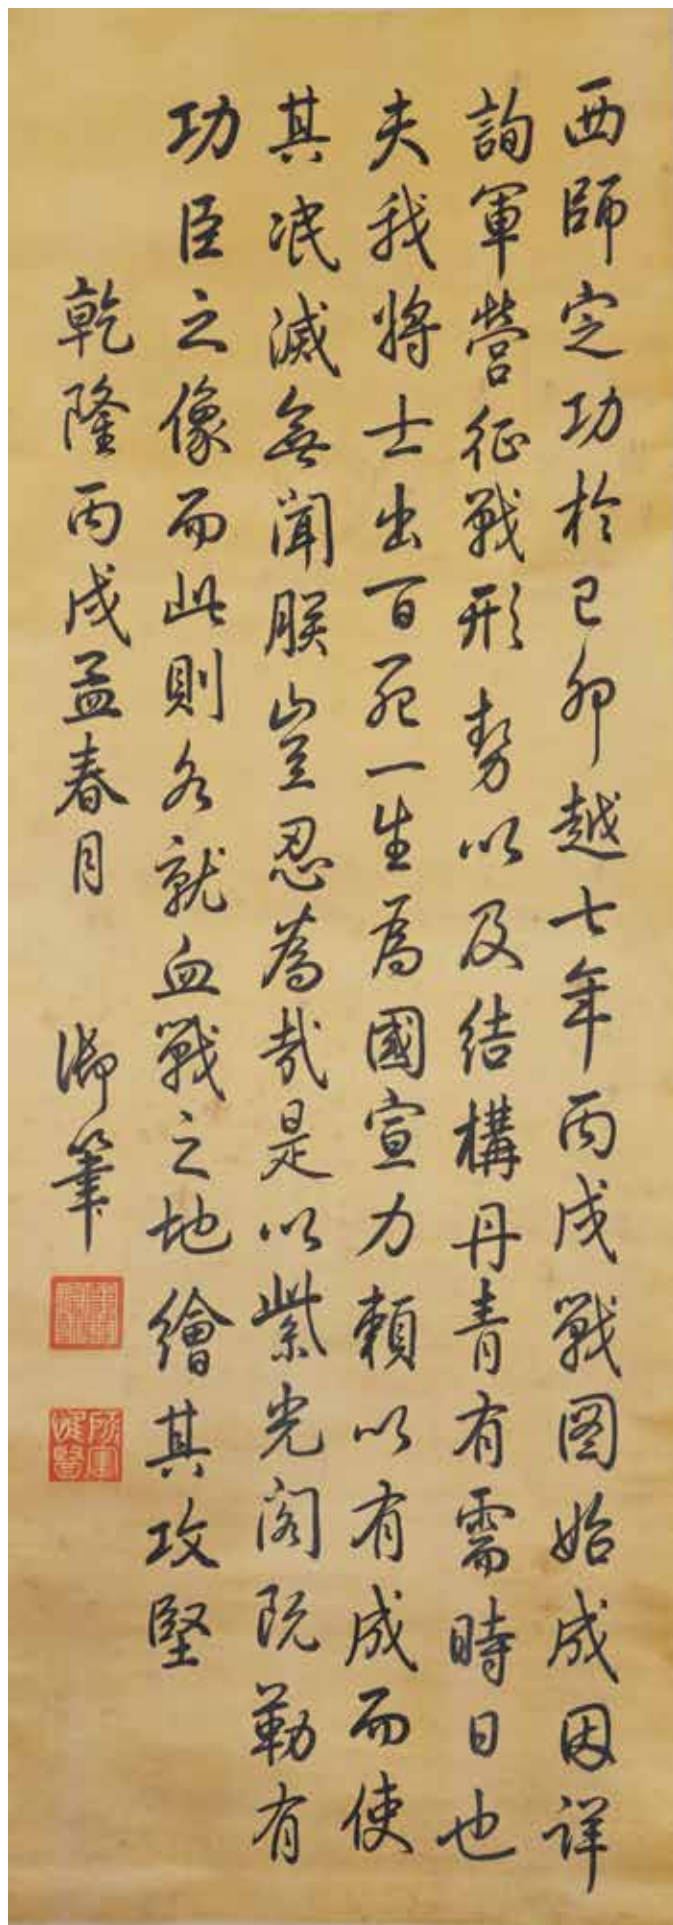 西師定功於己卯越七年丙戌戰图始成因詳
詢軍營征戰形勢以及結構丹青有需時日也
夫我將士出百死一生為國宣力賴以有成而使
其泯滅無聞朕豈忍為哉是以紫光閣既勒有
功臣之像而此則各就血戰之地繪其攻堅
乾隆丙戌孟春月 御筆